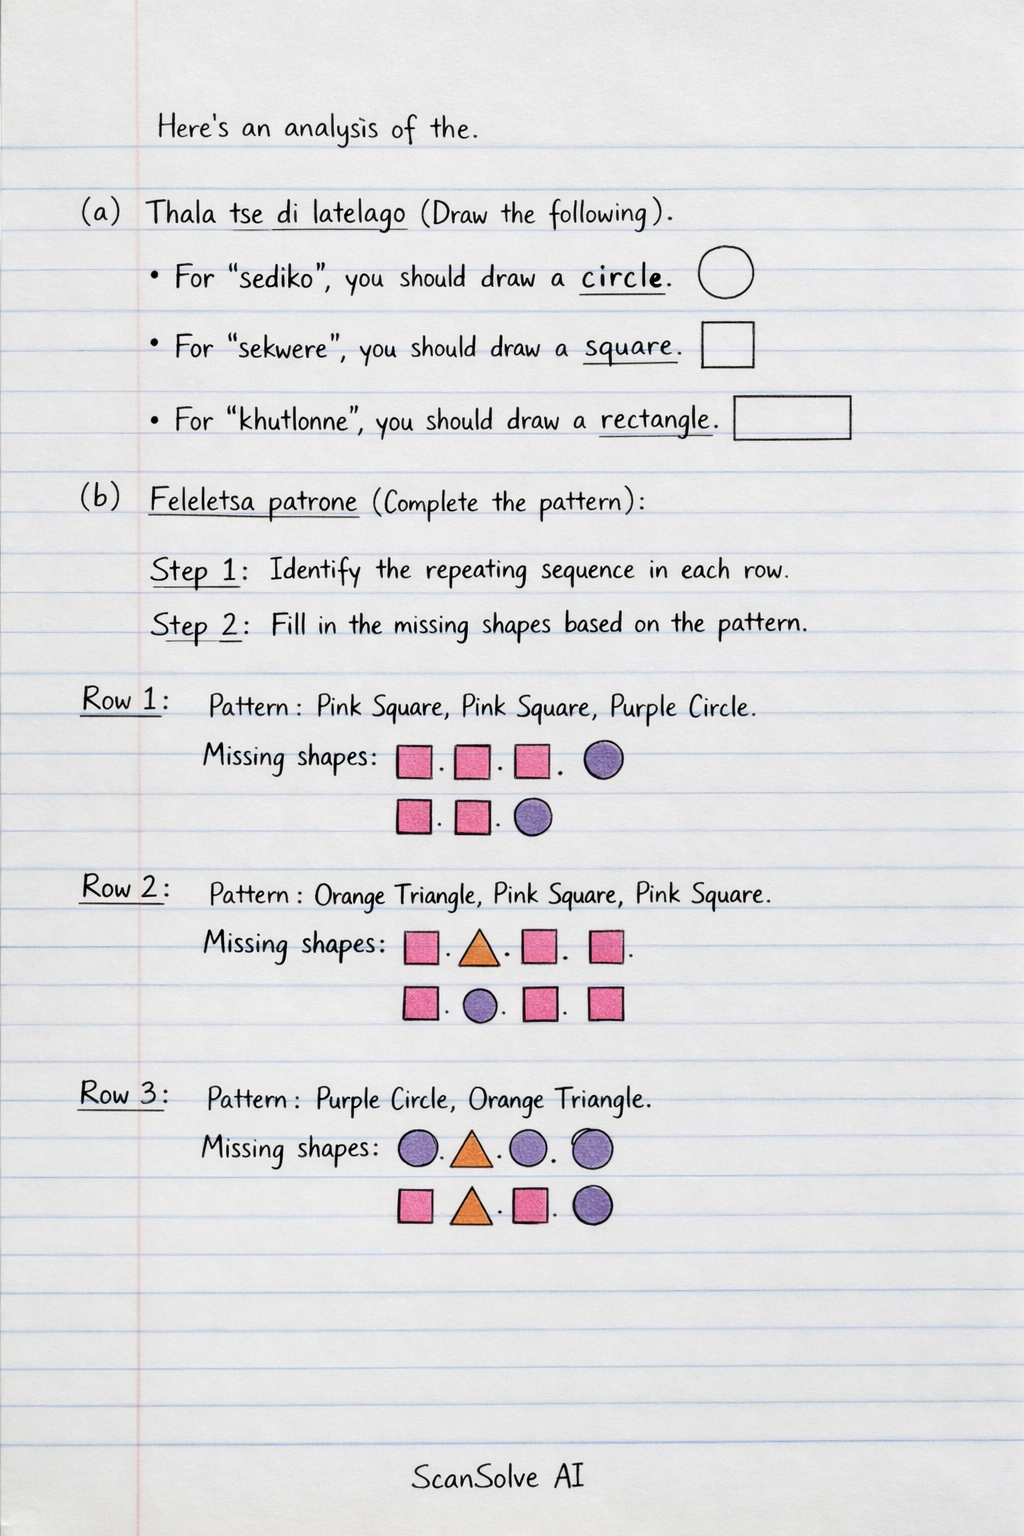 Here's an analysis of the.
(a) Thala tse di latelago (Draw the following).
• For "sediko", you should draw a circle.
• For "sekwere", you should draw a square.
• For "khutlonne", you should draw a rectangle.
(b) Feleletsa patrone (Complete the pattern):
Step 1: Identify the repeating sequence in each row.
Step 2: Fill in the missing shapes based on the pattern.
Row 1: Pattern: Pink Square, Pink Square, Purple Circle.
Missing shapes:
Row 2: Pattern: Orange Triangle, Pink Square, Pink Square.
Missing shapes:
Row 3: Pattern: Purple Circle, Orange Triangle.
Missing shapes:
ScanSolve AI